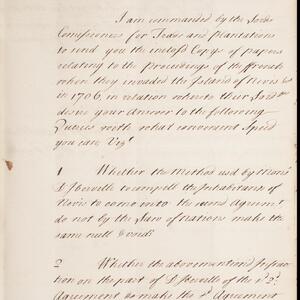 I am commanded by the Lords
Comissioners for Trade and Plantations
to send you the inclosed Copys of papers
relating to the Proceedings of the ffrench
when they invaded the Island of Nevis
in 1706, in relation whereto their Lordps
desire your Answer to the following
Queries with what convenient Speed
you can Vizt
1 Whether the Method used by Monsr
D'Iberville to compell the Inhabitants of
Nevis to come into the second Agreemt
do not by the Law of Nations make the
same null & void.
2 Whether the abovementiond Infrac-
tion on the part of D'Iberville of the sd 2d
Agreement do make the sd Agreement